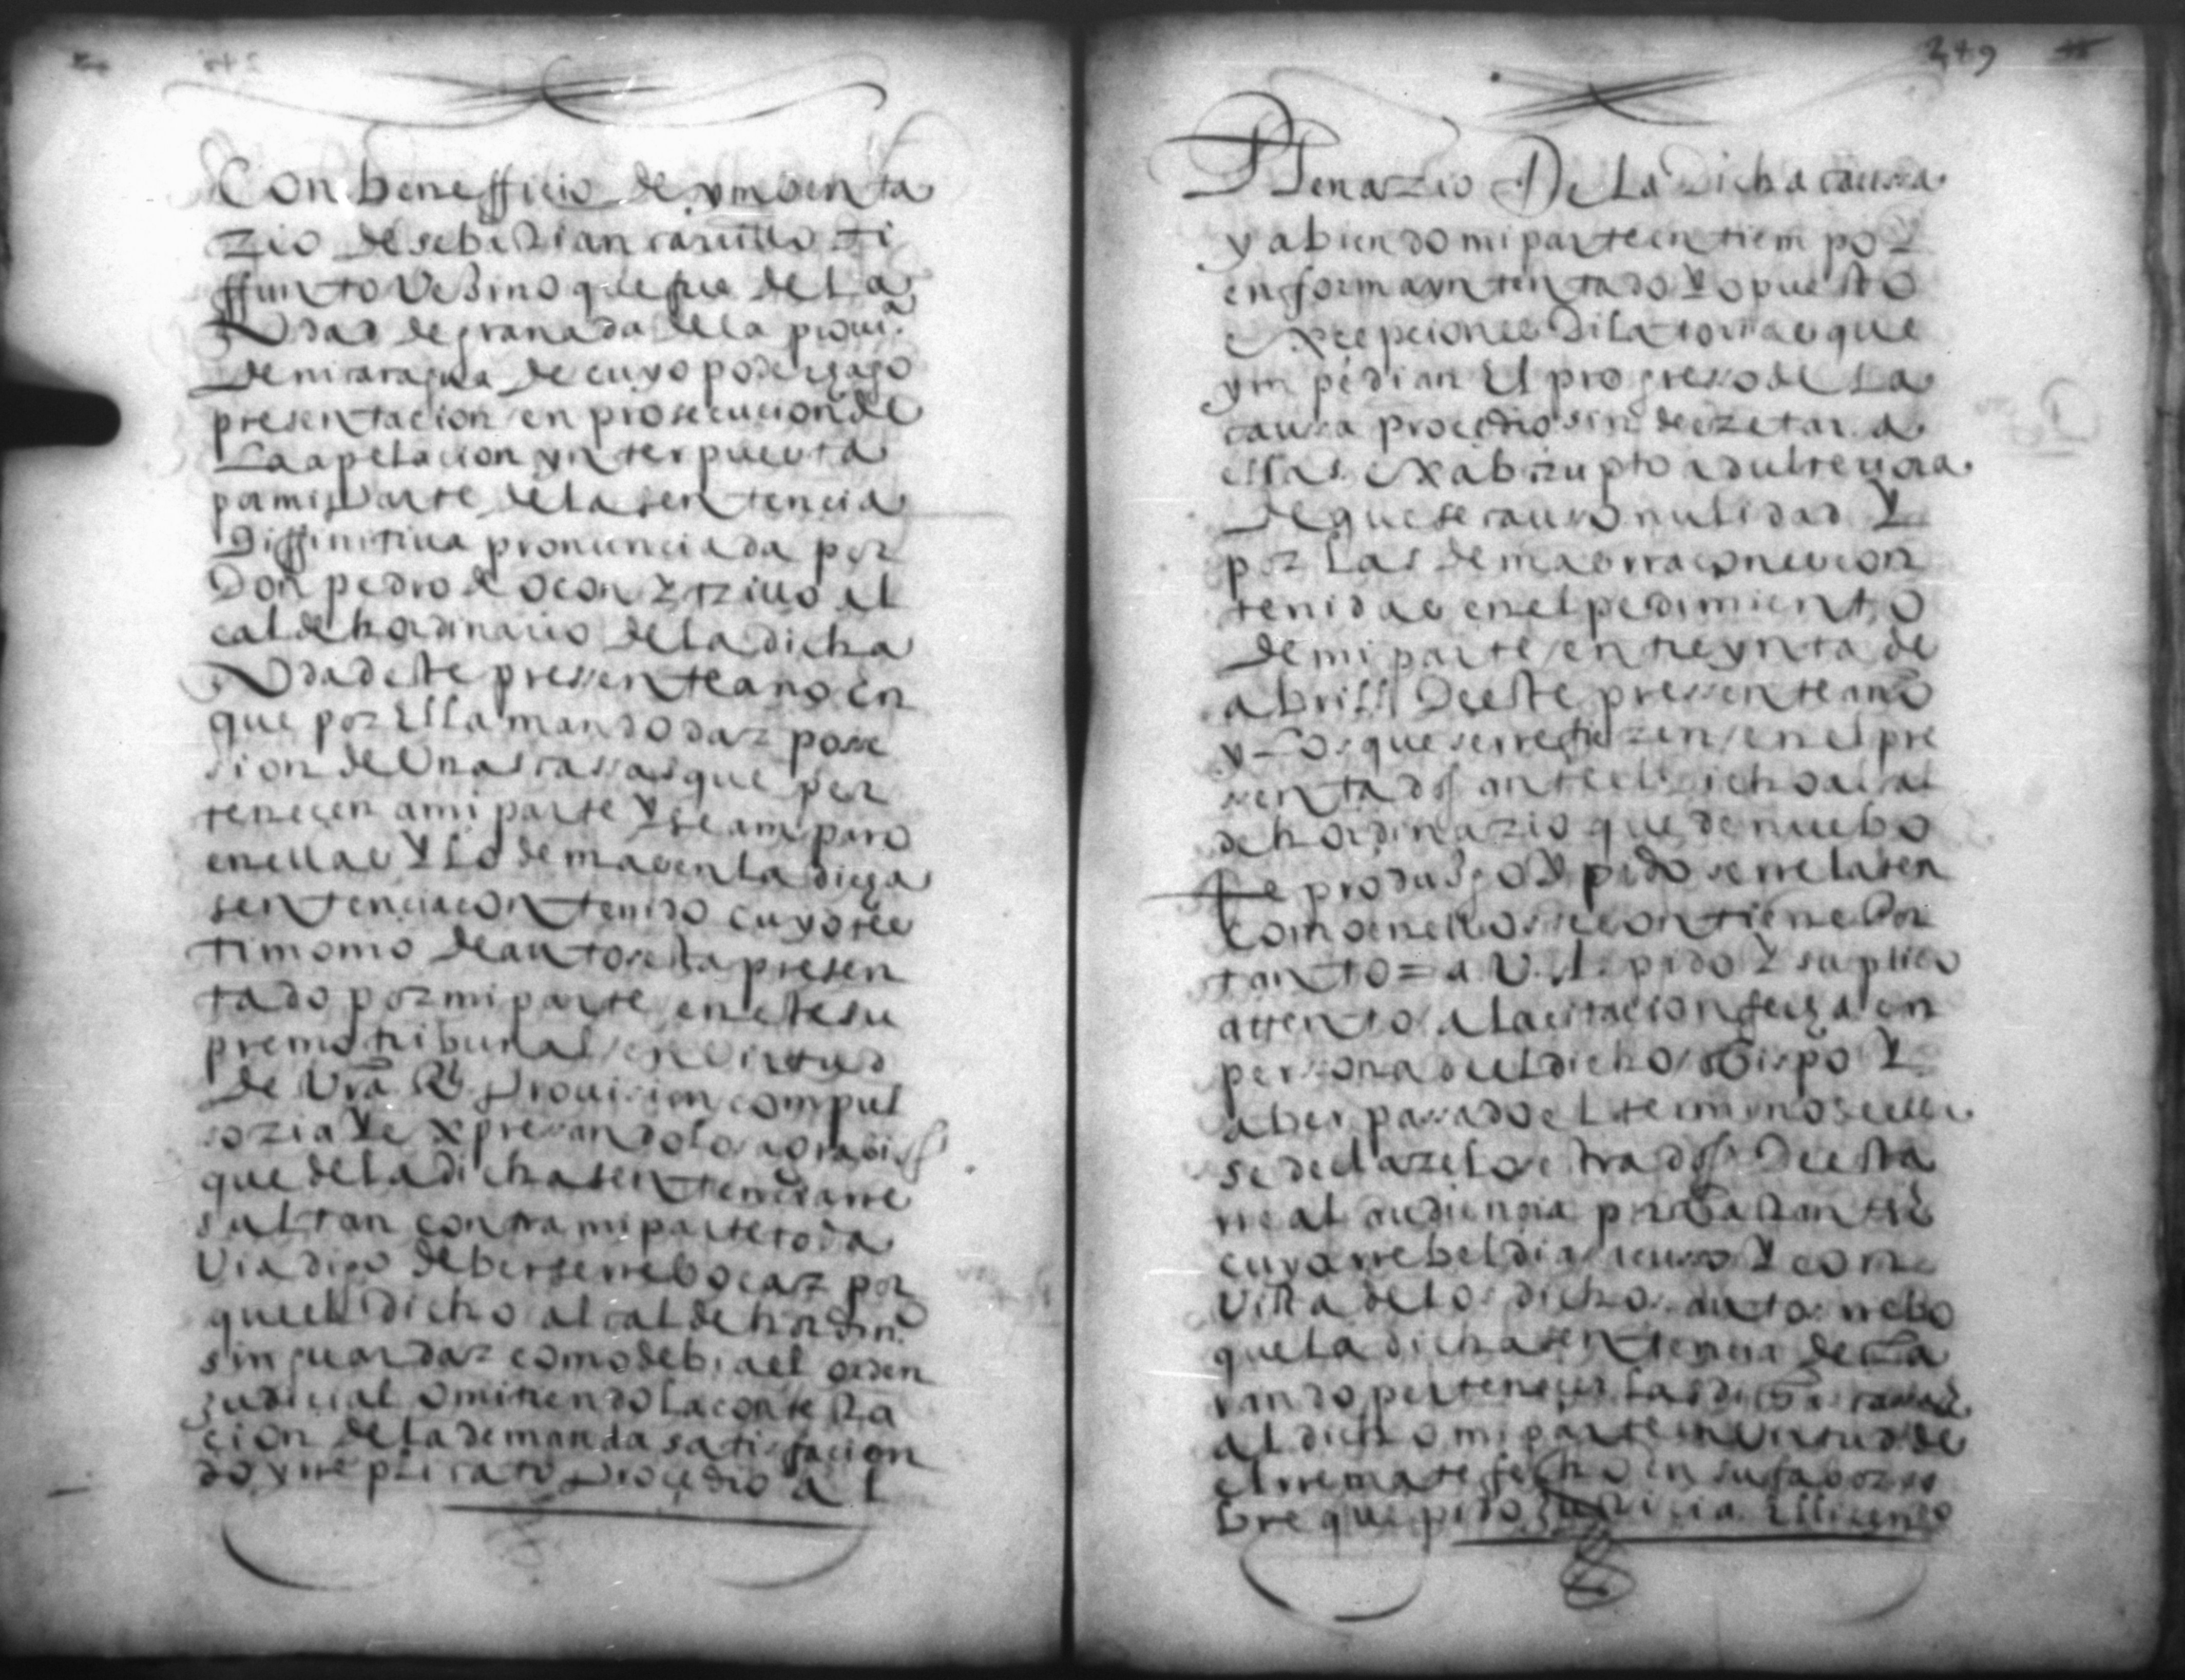 249
Con benefficio de ymbenta
rio de sebastian carrillo di
ffunto Vesino que fue de la
ciudad de granada de la prouiª
de nicaragua de cuyo poder hago
presentacion en prosecucion de
La apelacion ynterpuesta
por mi parte de la sentencia
Diffinitiua pronunciada por
Don pedro de ocon y trillo al
calde hordinario de la dicha
ciudad este pressente ano en
que por ella mando dar posse
sion de Unas cassas que per
tenecen a mi parte y se amparo
en ellas y lo demas en la dicha
sentencia contenido cuyo tes
timonio de autos esta presen
tado por mi parte en este su
premo tribunal en Virtud
de Vrã Rl Prouision compul
soria y expressando los agrauios
que de la dicha sentencia rre
sultan contra mi parte toda
Via digo deberse rrebocar por
que el dicho alcalde hordinº
sin guardar como debia el orden
judicial omitiendo la contesta
cion de la demanda satisfacion
do y rreplicato Procedio a l
Plenario De La Dicha caussa
y abiendo mi parte en tiempo y
en forma yntentado y opuesto
exxepciones Dilatorias que
ympedian el progresso de La
caussa procedio sin decretar a
ellas ex abrupto adulteriora
de que se causo nulidad y
por Las demas rraçones con
tenidas en el pedimiento
de mi parte en treynta de
abrill Deeste pressente año
y Los que se rrefieren en el pre
sentados ante el dicho alcal
de hordinario que de nuebo
Re produsgo y pido se rrelaten
Como en ellos se contiene Por
tanto = a V. A. pido y suplico
attento a La citacion fecha en
persona de el dicho obispo y
aber passado el termino de ella
se declare los estrados Deesta
rreal audiencia por bastante
cuya rrebeldia acuso y con
Vista de los dichos autos rrebo
que La dicha sentencia decla
rando pertenecer Las dichas cassas
al dicho mi parte en Virtud de
el rremate fecho en su fabor so
bre que pido Justicia. El licendº